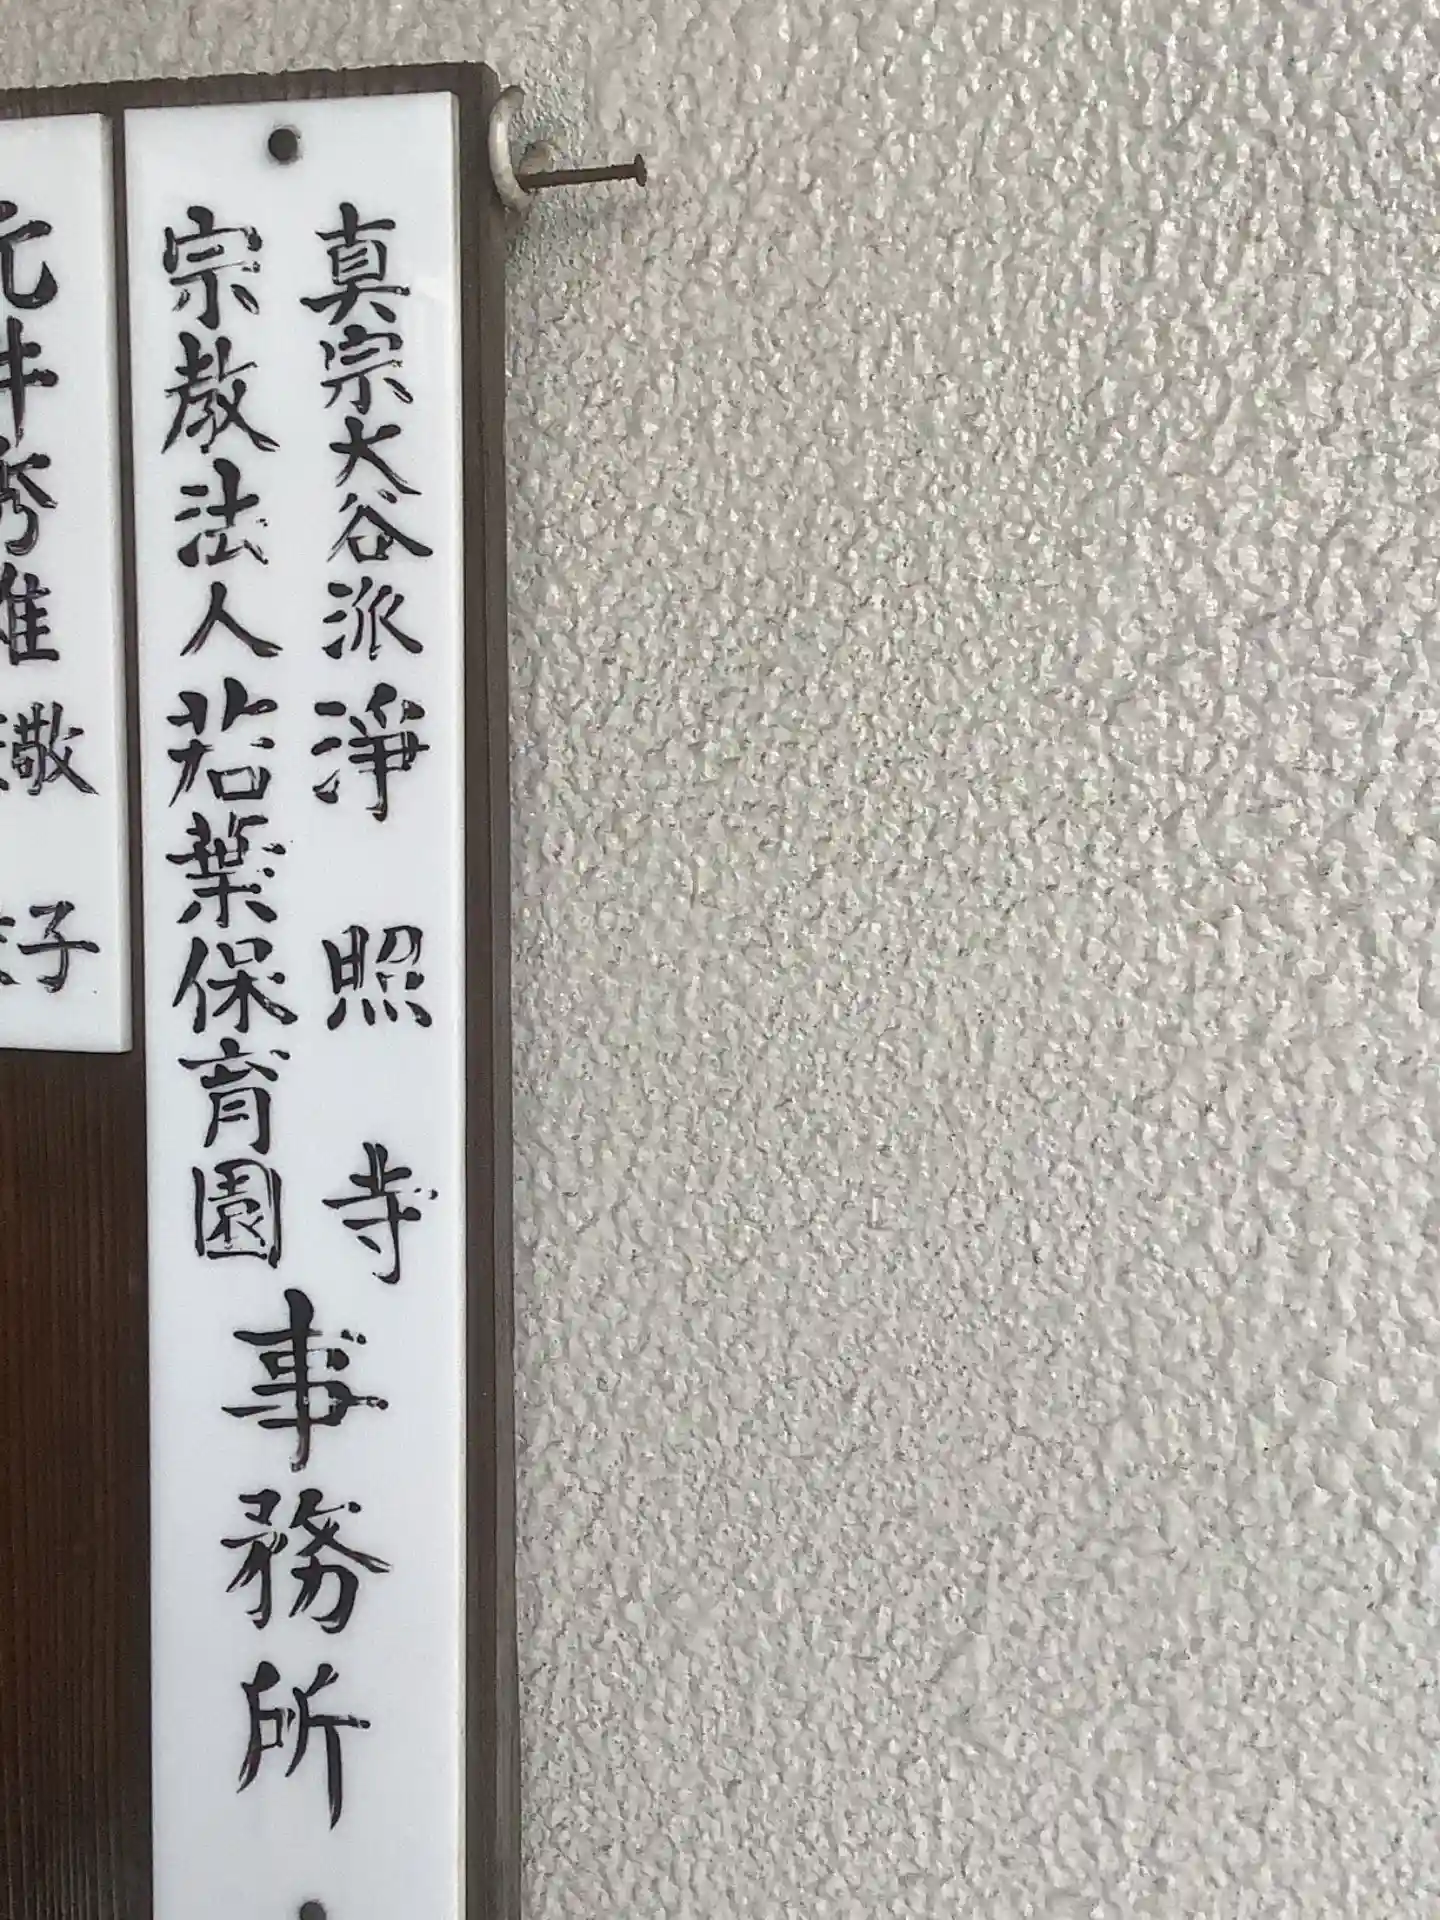 真宗大谷派 淨照寺
宗教法人 若葉保育園
事務所
元井秀雄
子